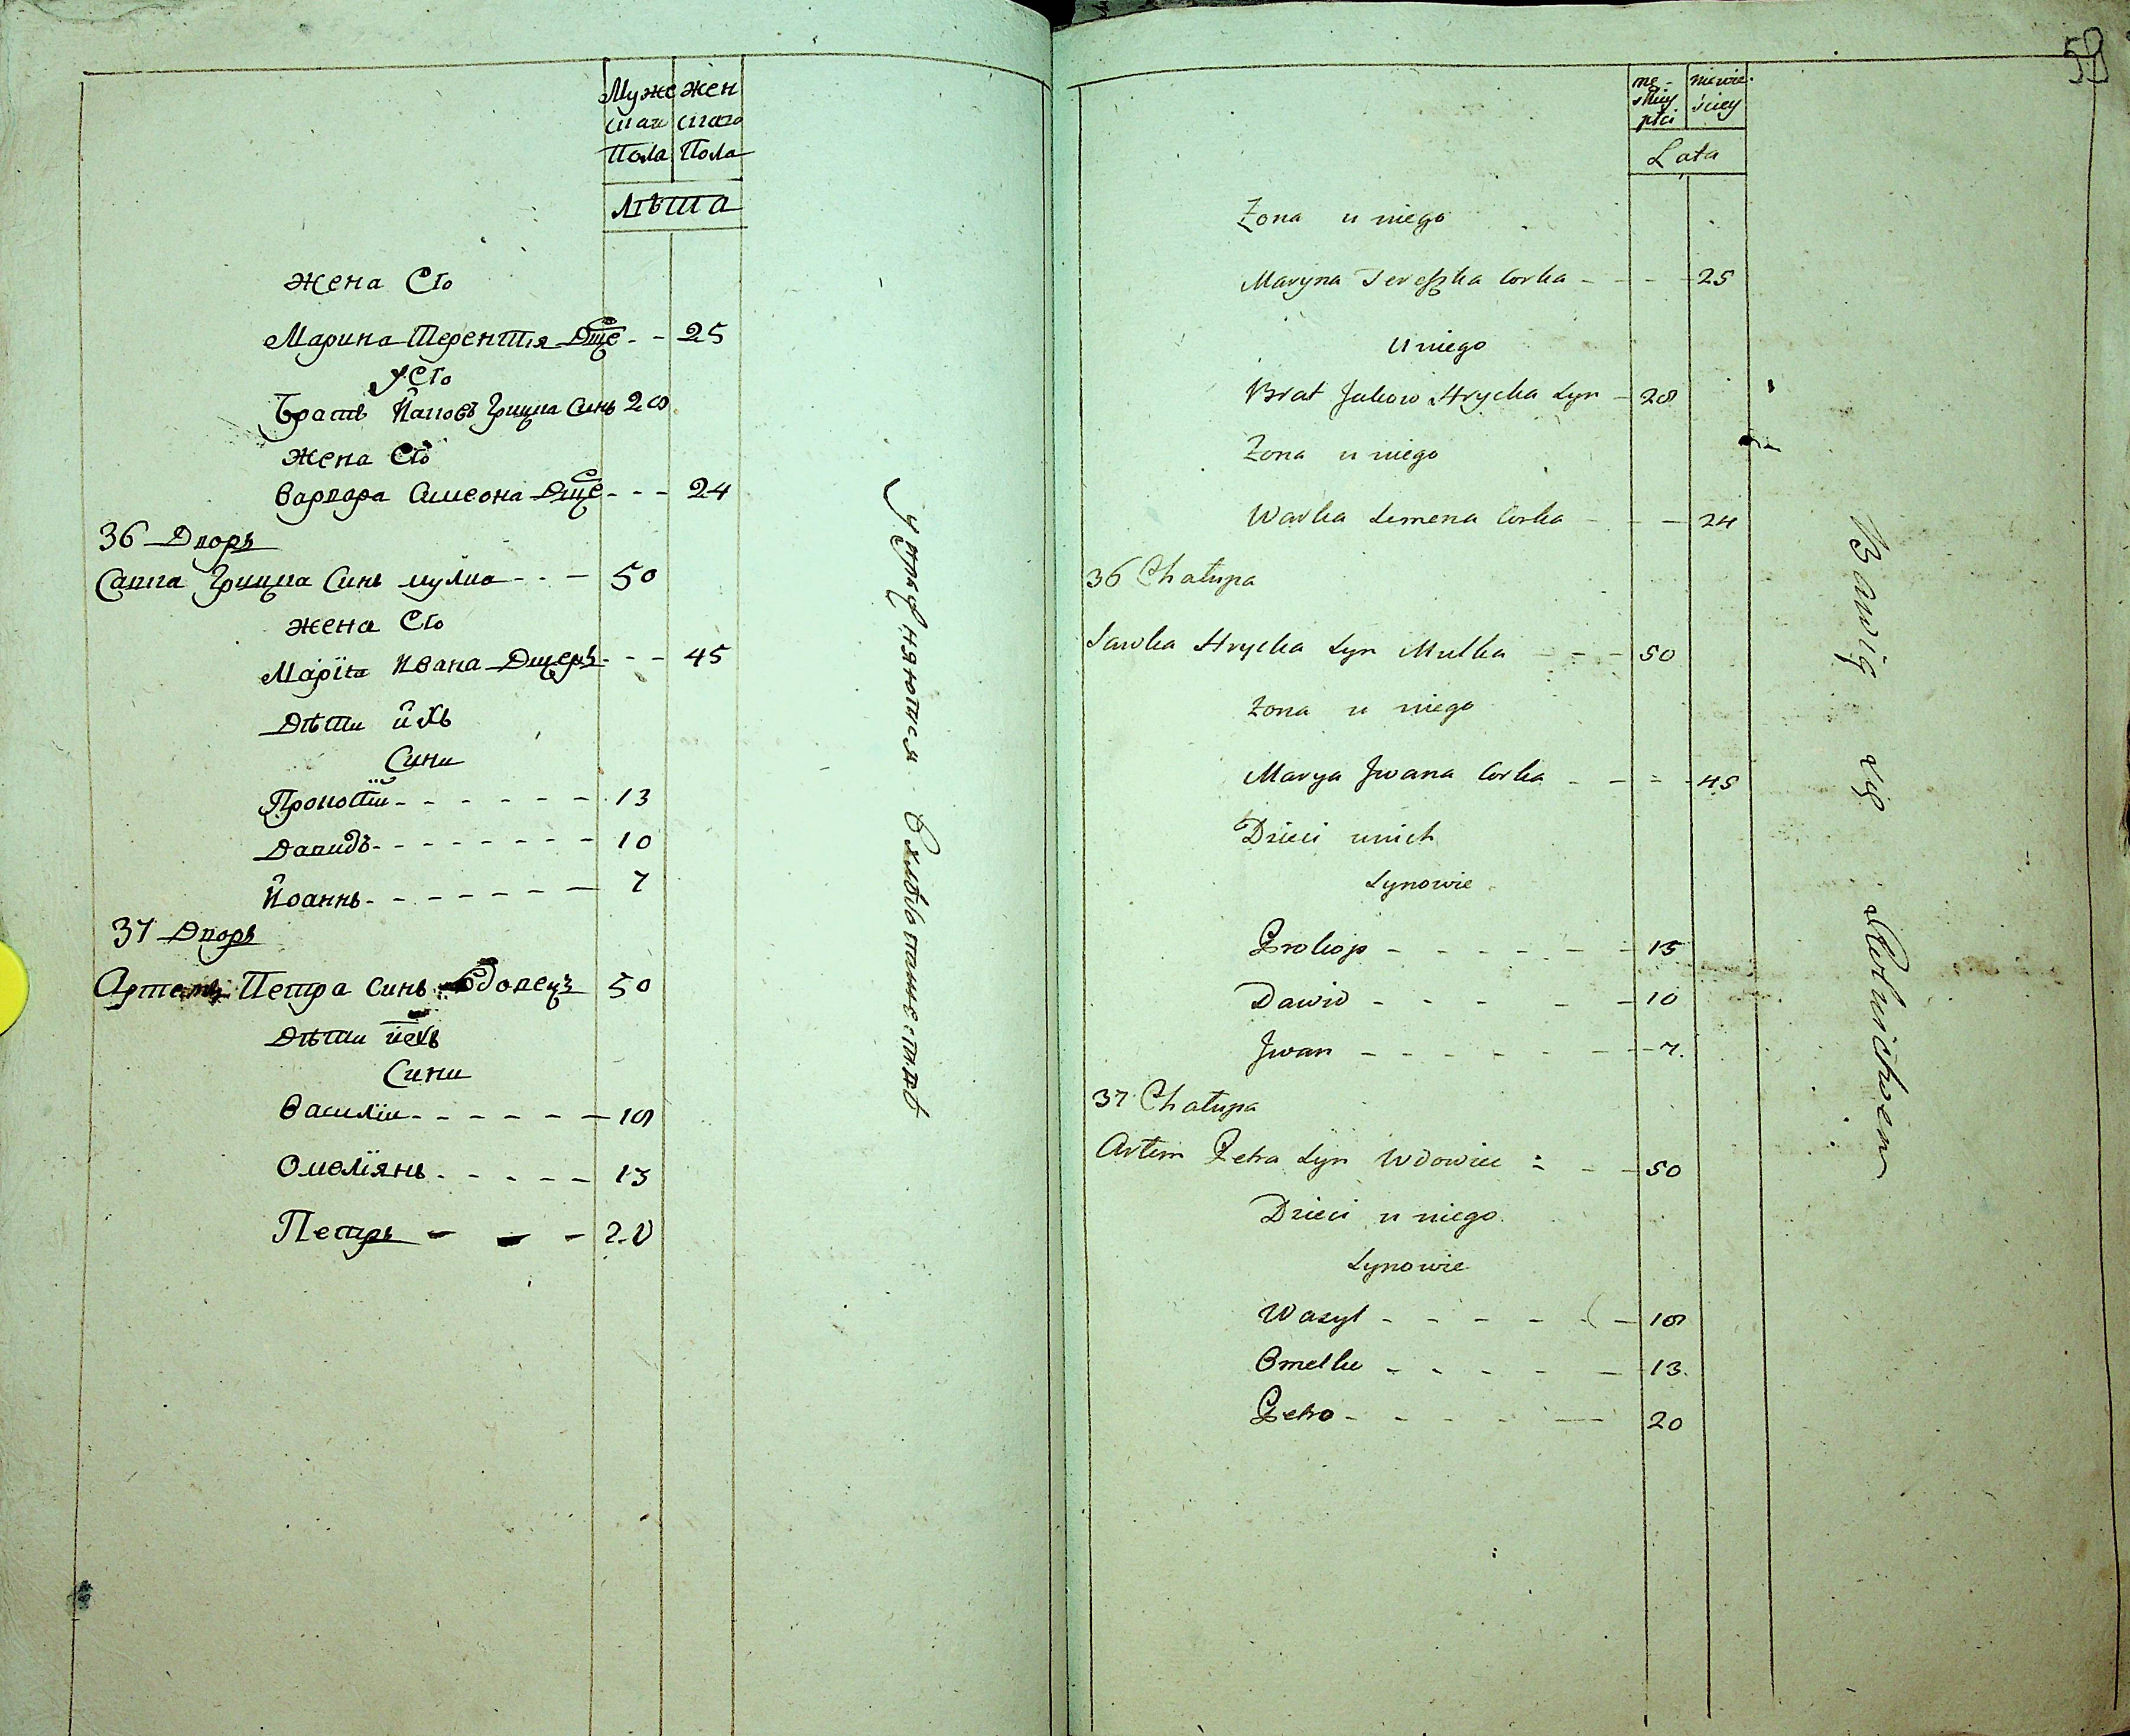 Муже жен
скаг скаго
Пола Пола
Лѣта
жена Его
Марина Терентія Дще - - 25
У Его
Братъ Яковъ Грицка Синъ 28
жена Его
Варвара Симеона Дще - - - 24
36 Дворъ
Савка Грицка Синъ мулка - - - 50
жена Его
Маріа Ивана Дщерь - - - 45
Дѣти ихъ
Сини
Прокопій - - - - - - 13
Давидъ - - - - - - - - 10
Иоаннъ - - - - - - - 7
37 Дворъ
Артемъ Петра Синъ Вдовецъ 50
Дѣти ихъ
Сини
Василіи - - - - - - 18
Омеліянъ - - - - - 13
Петръ - - - 20
Упражняются Хлѣбопашествѣ
59
mę- niewie-
skiey sciey
płci
Lata
Zona u niego
Maryna Tereszka Corka - - - 25
U niego
Brat Jakow Hrycka Syn - 28
Zona u niego
Warka Semena Corka - - - 24
36 Chałupa
Sawka Hrycka Syn Mulka - - - 50
Zona u niego
Marya Jwana Corka - - - - 45
Dzieci unich
Synowie
Prokop - - - - - - 13
Dawid - - - - - 10
Jwan - - - - - - - 7.
37 Chałupa
Artim Petra Syn Wdowiec - - - 50
Dzieci u niego
Synowie
Wasyl - - - - - - 18
Omelko - - - - - 13.
Petro - - - - - 20
Bawią się Rolnictwem